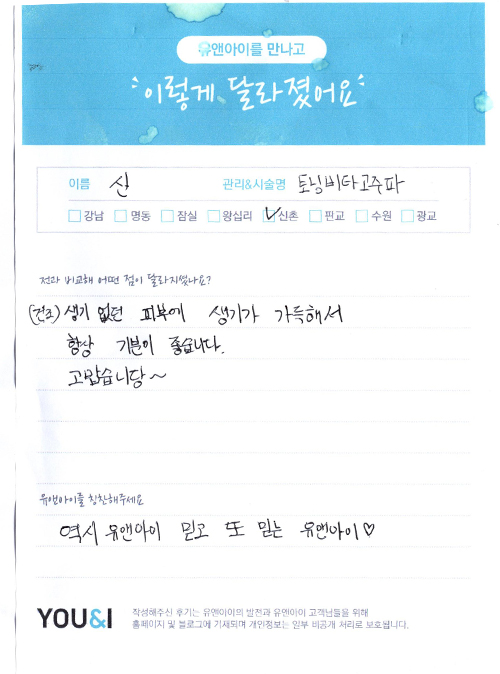 유앤아이를 만나고
이렇게 달라졌어요
이름 신 관리&시술명 토닝비타고주파
강남 명동 잠실 왕십리 신촌 판교 수원 광교
전과 비교해 어떤 점이 달라지셨나요?
(건조) 생기 없던 피부에 생기가 가득해서
항상 기분이 좋습니다.
고맙습니당~
유앤아이를 칭찬해주세요
역시 유앤아이 믿고 또 믿는 유앤아이♡
YOU&I
작성해주신 후기는 유앤아이의 발전과 유앤아이 고객님들을 위해
홈페이지 및 블로그에 기재되며 개인정보는 일부 비공개 처리로 보호됩니다.